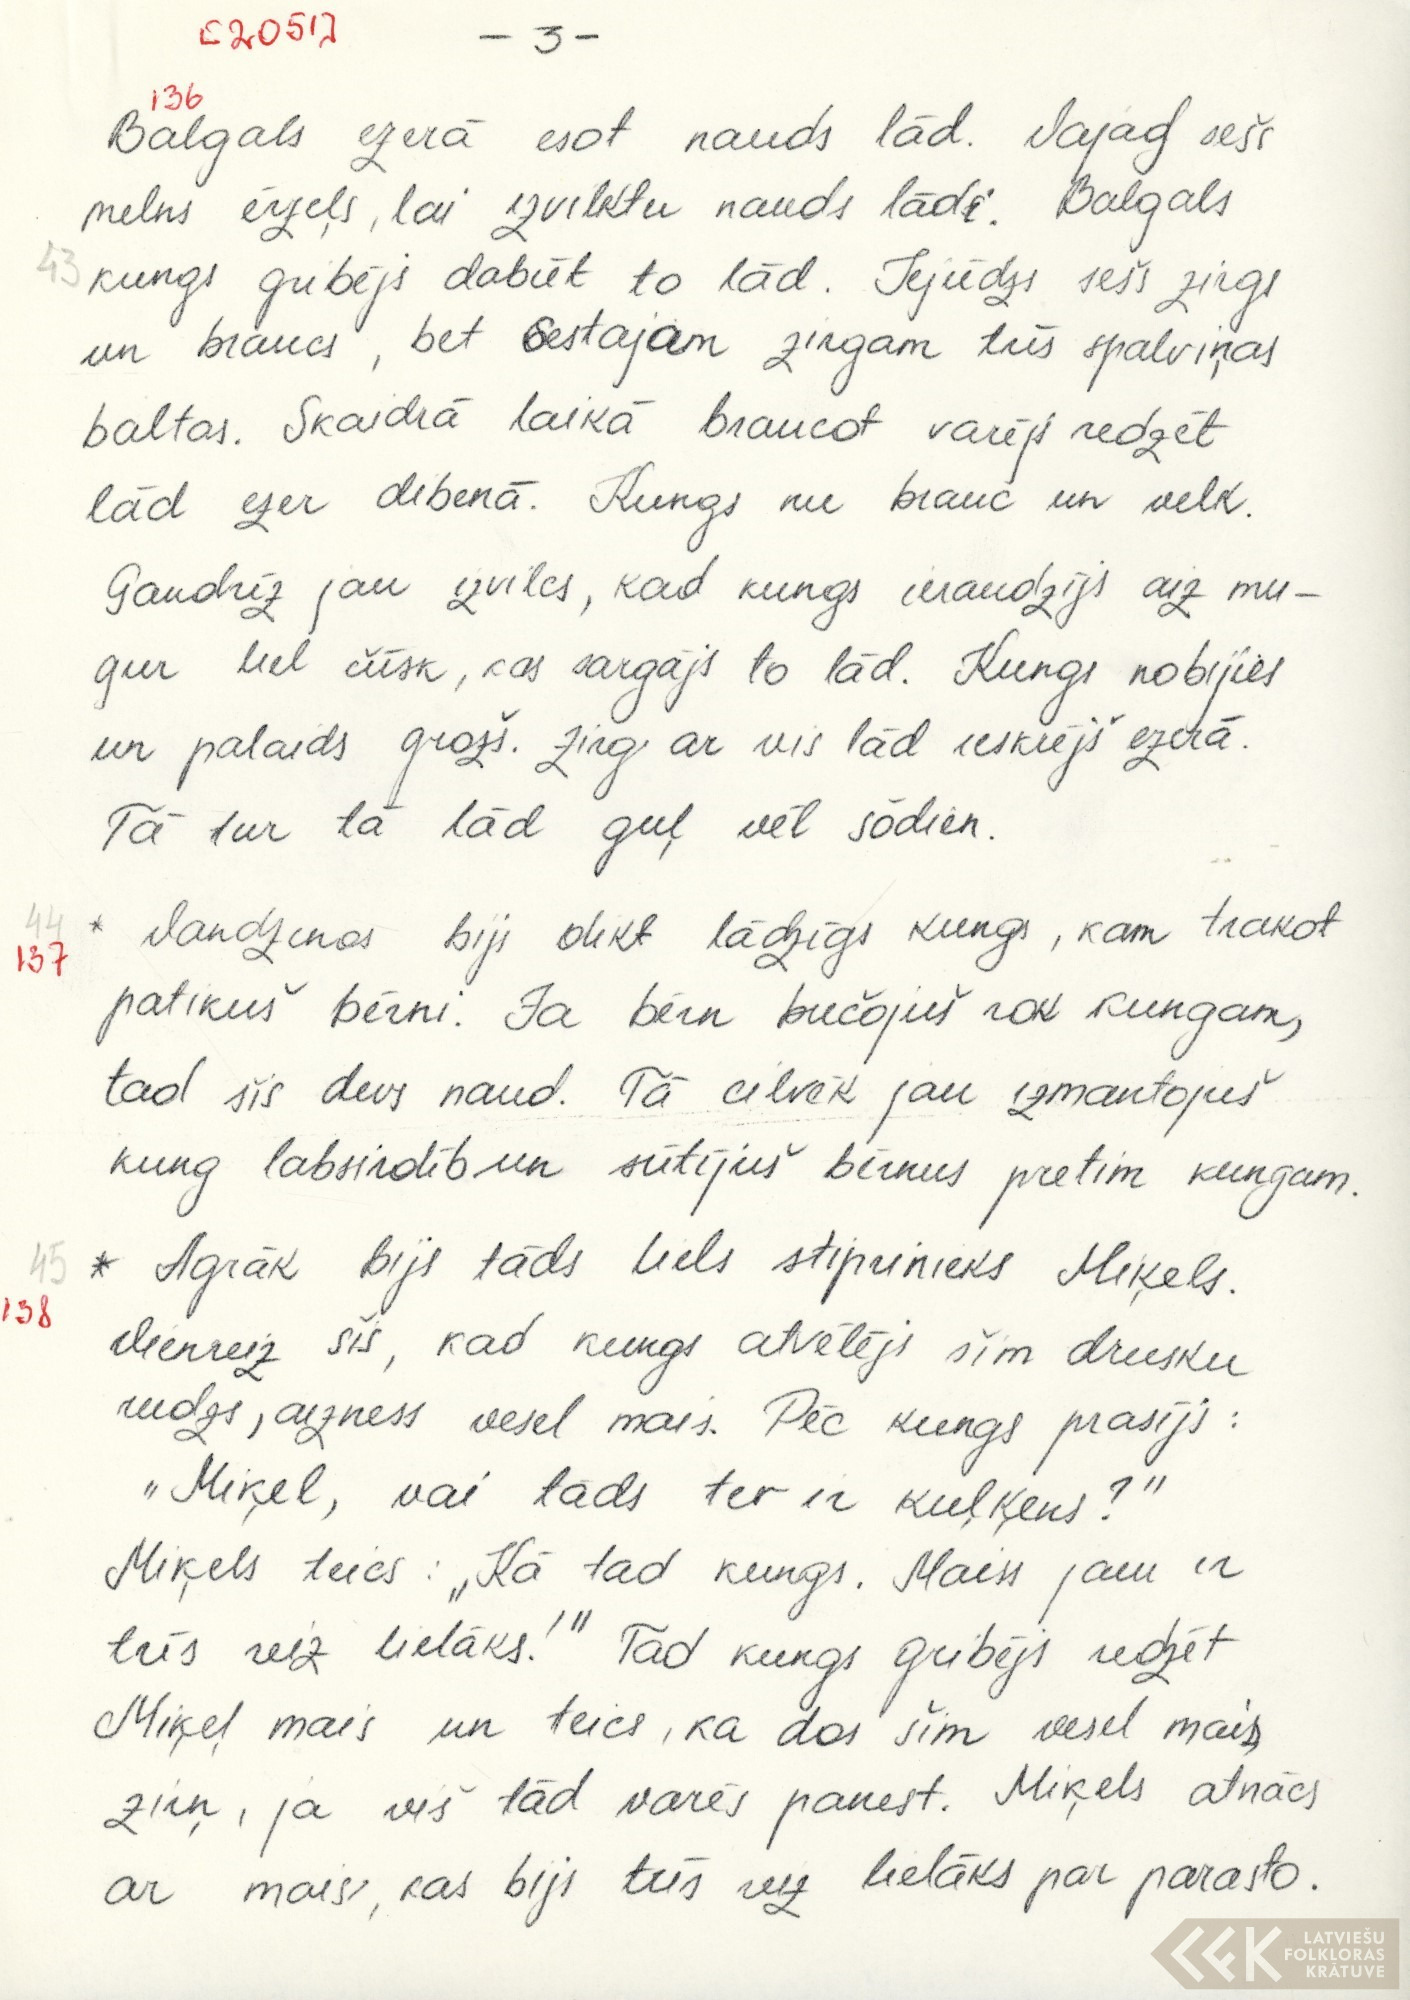 E20517
- 3 -
136
Balgals ezerā esot nauds lād. Vajag seši
melns ērzeļs, lai izvilktu nauds lādi. Balgals
43 kungs gribējs dabūt to lād. Iejūdzs sešs zirgs
un braucs, bet sestajam zirgam trīs spalviņas
baltas. Skaidrā laikā braucot varējs redzēt
lād ezer dibenā. Kungs nu brauc un velk.
Gandrīz jau izvilcs, kad kungs ieraudzījs aiz mu-
gur liel čūsk, kas sargājs to lād. Kungs nobijies
un palaids grozš. Zirg ar vis lād ieskrējš ezerā.
Tā tur tā lād guļ vēl šodien.
44 * Vandzenos bijs dikt lādzīgs kungs, kam trakot
137
patikuš bērni. Ja bērn bučojuš rok kungam,
tad šis devs naud. Tā cilvēk jau izmantojuš
kung labsirdīb un sūtījuš bērnus pretim kungam.
45 * Agrāk bijs tāds liels stiprinieks Miķels.
138
Vienreiz šis, kad kungs atvēlējs šim drusku
rudzs, aizness vesel mais. Pēc kungs prasījs:
"Miķel, vai tāds ter ir kuļķens?"
Miķels teics: "Kā tad kungs. Maiss jau ir
trīs reiz lielāks!" Tad kungs gribējs redzēt
Miķeļ mais un teics, ka dos šim vesel mais
zirņ, ja viš tād varēs panest. Miķels atnācs
ar mais, kas bijs trīs reiz lielāks par parasto.
LATVIEŠU
FOLKLORAS
KRĀTUVE